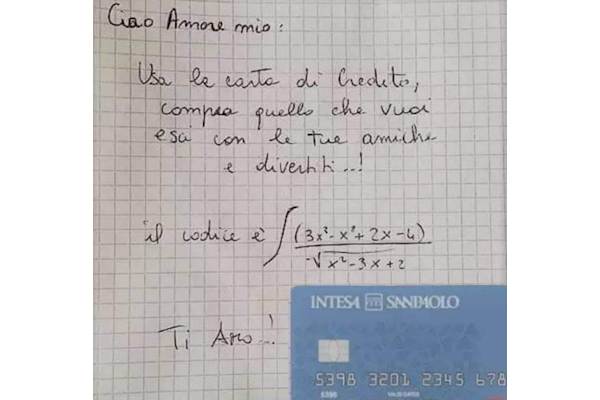 Ciao Amore mio:
Usa la carta di Credito,
compra quello che vuoi
esci con le tue amiche
e divertiti..!
il codice è ∫ (3x³-x²+2x-4) / √x²-3x+2
Ti Amo..!
INTESA SANPAOLO
5398 3201 2345 678
5398
VALID DATES